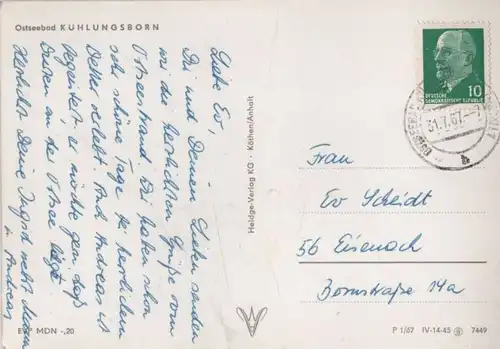 Ostseebad KÜHLUNGSBORN
Liebe Ev,
Dir und Deinen Lieben senden
wir die herzlichsten Grüße vom
Ostseestrand. Wir haben schon
sehr schöne Tage bei herrlichem
Wetter verlebt. Auch Andreas ist
begeistert, er möchte gern
an der Ostsee
Herzlichst Deine Ingrid nebst
u. Andreas
EVP MDN -,20
Heldge-Verlag KG · Köthen/Anhalt
10
DEUTSCHE
DEMOKRATISCHE REPUBLIK
31.7.67
Frau
Ev Scheidt
56 Eisenach
Bornstraße 14a
P 1/67 IV-14-45 7449